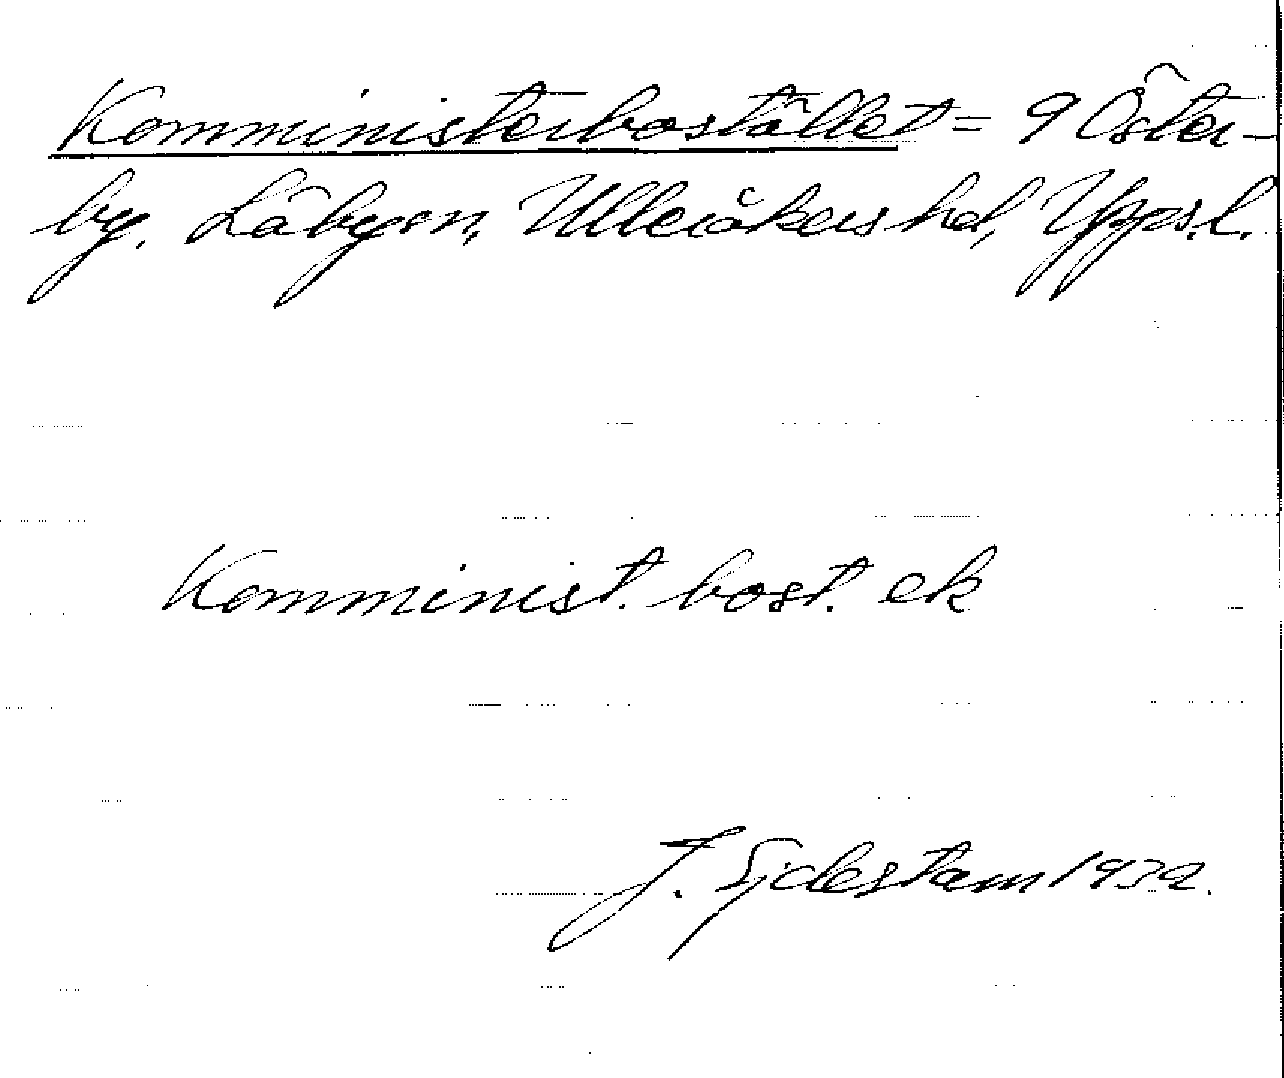 Komministerbostället = 9 Öster-
by. Läby sn, Ulleråkers hd, Upps.l.
Komminist. bost. ek
J. Sjdestam 1932.